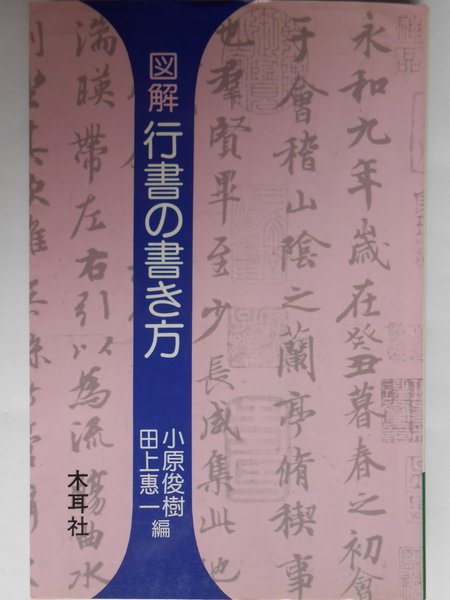 永和九年歳在癸丑暮春之初會
于會稽山陰之蘭亭脩稧事
也羣賢畢至少長咸集此地
図解 行書の書き方
小原俊樹
田上惠一 編
木耳社
湍暎帶左右引以為流觴曲水